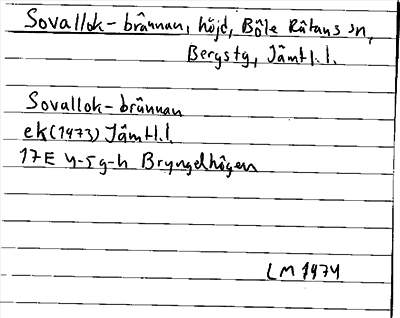 Sovallok-brännan, höjd, Böle Rätans sn,
Bergs tg, Jämtl.l.
Sovallok-brännan
ek (1973) Jämtl.l.
17E 4-5 g-h Bryngelhögen
LM 1974